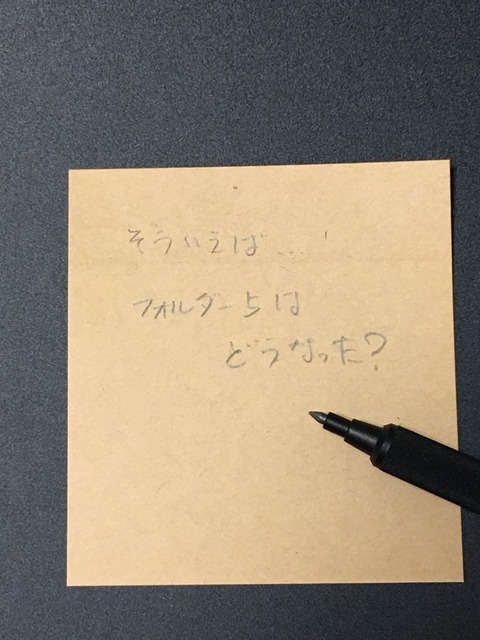 そういえば...
フォルダー5は
どうなった?